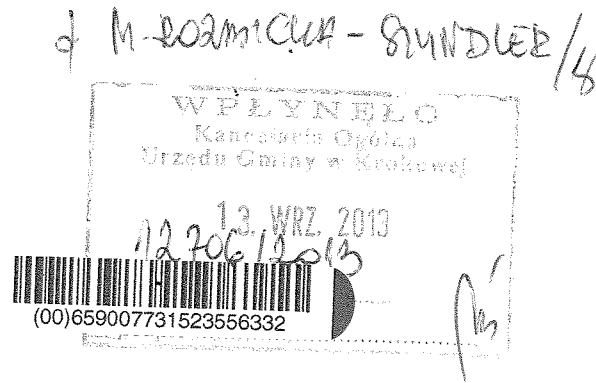 WPŁYNĘŁO
Kancelaria Ogólna
Urzędu Gminy w Krokowej
13. WRZ. 2013
12706/2013
(00)659007731523556332